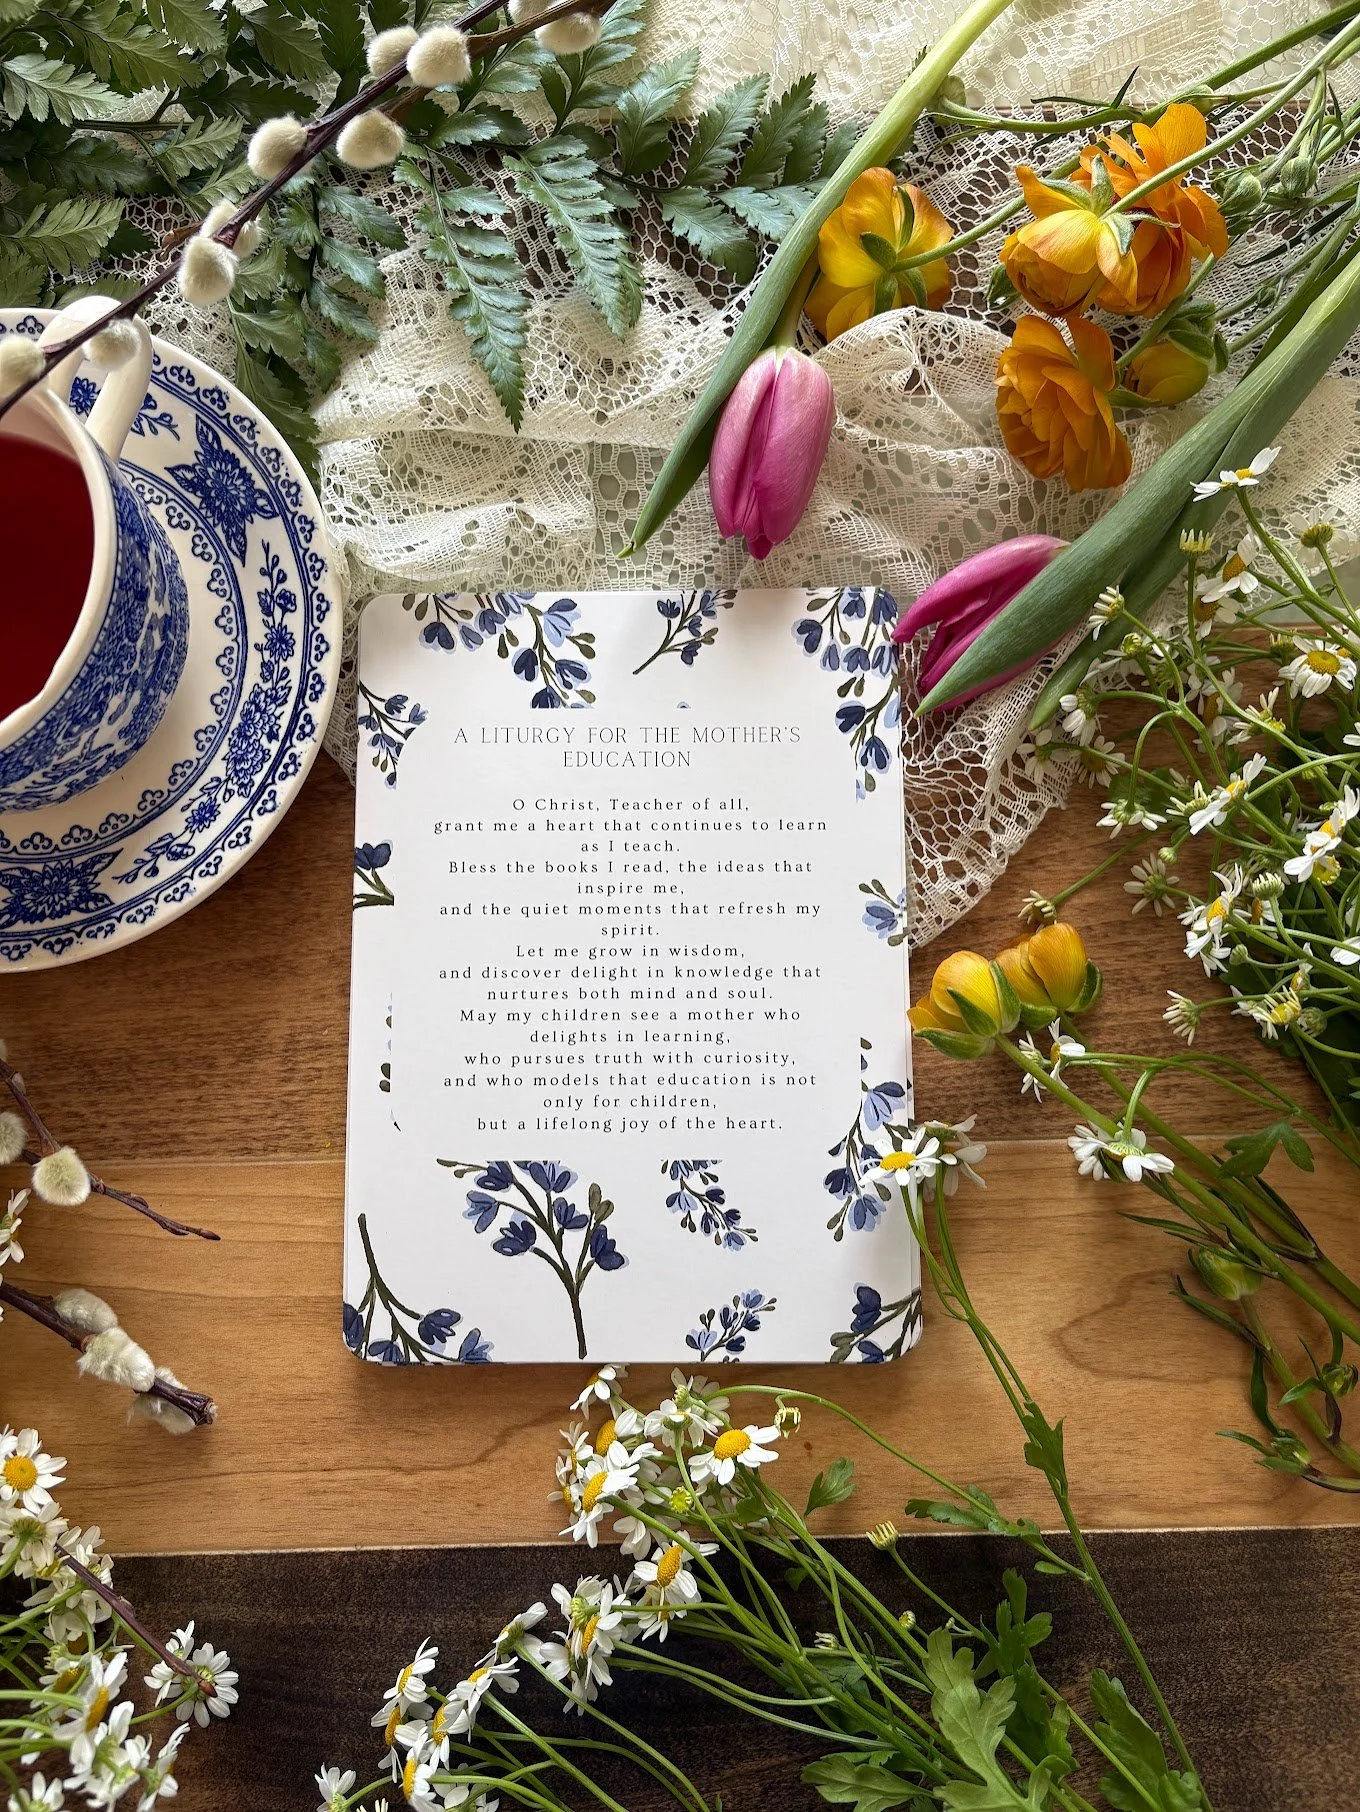 A LITURGY FOR THE MOTHER'S
EDUCATION
O Christ, Teacher of all,
grant me a heart that continues to learn
as I teach.
Bless the books I read, the ideas that
inspire me,
and the quiet moments that refresh my
spirit.
Let me grow in wisdom,
and discover delight in knowledge that
nurtures both mind and soul.
May my children see a mother who
delights in learning,
who pursues truth with curiosity,
and who models that education is not
only for children,
but a lifelong joy of the heart.